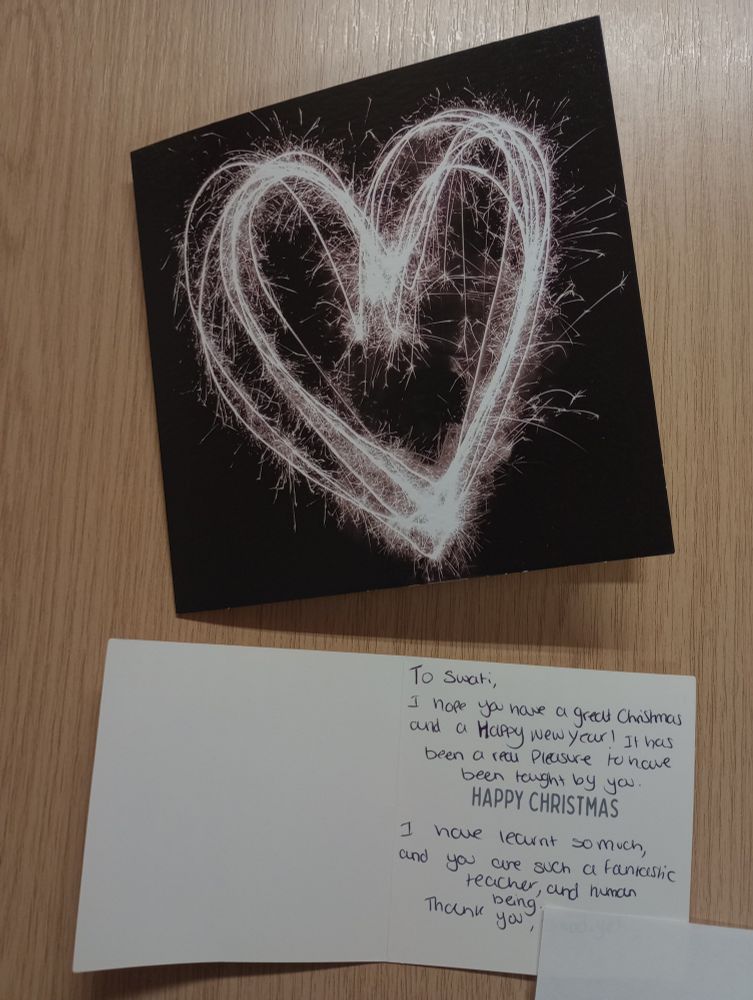 To Swati,
I hope you have a great Christmas
and a Happy New Year! It has
been a real pleasure to have
been taught by you.
HAPPY CHRISTMAS
I have learnt so much,
and you are such a fantastic
teacher, and human
being.
Thank you,